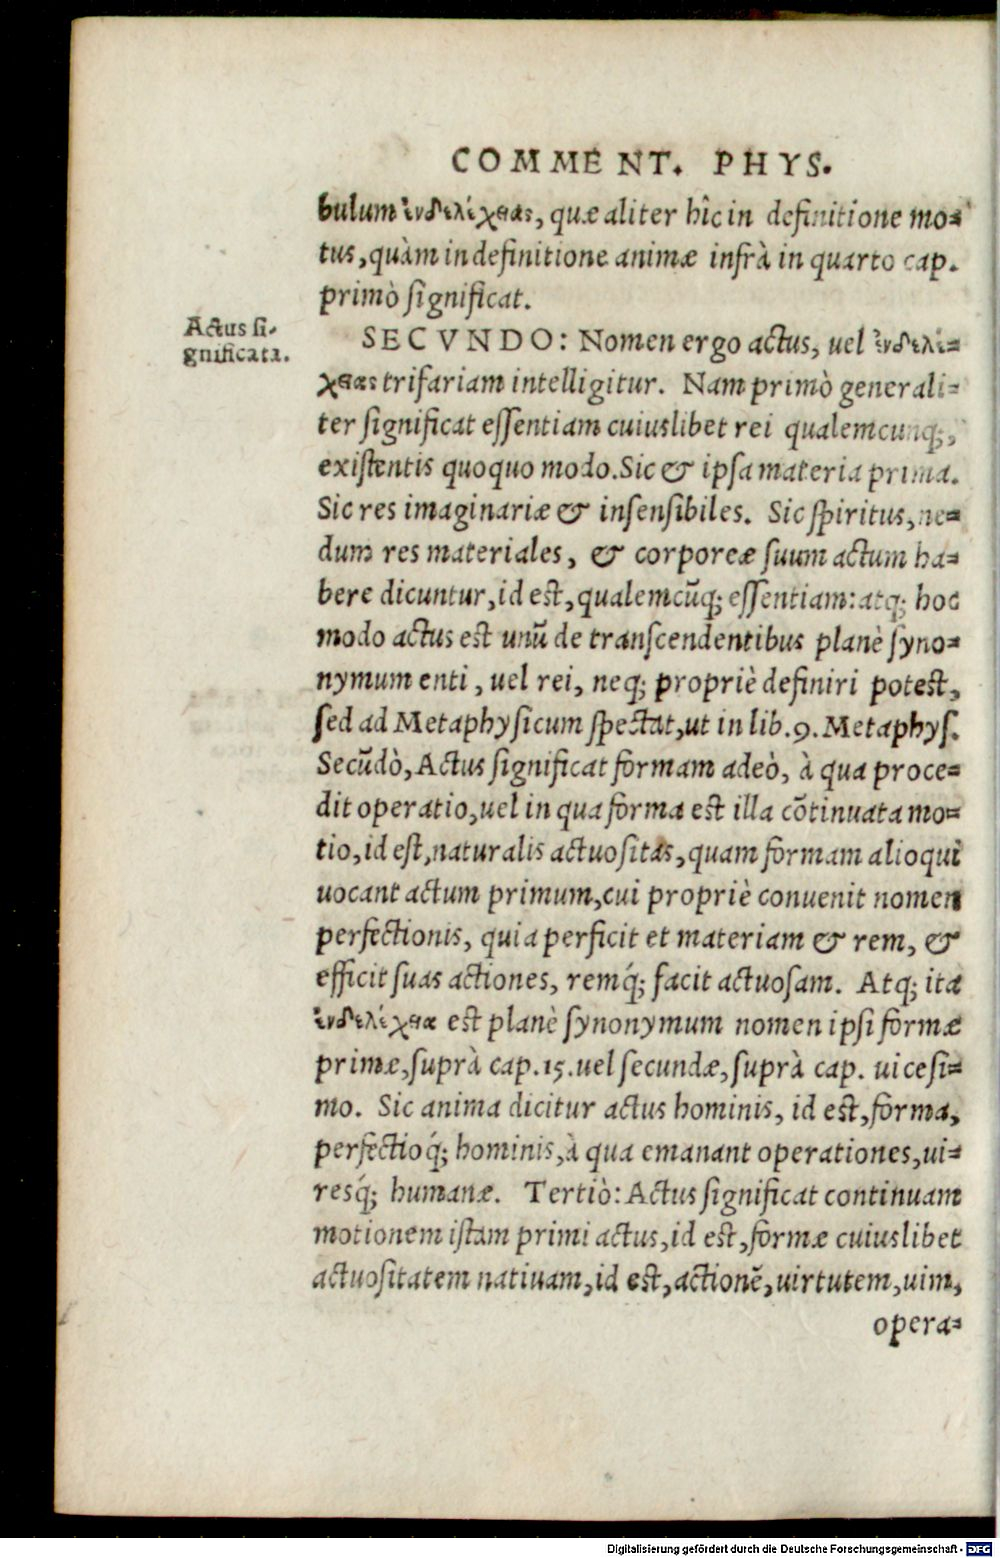 COMMENT. PHYS.
bulum ἐνδελέχειας, quæ aliter hîc in definitione mo=
tus, quàm in definitione animæ infrà in quarto cap.
primò significat.
Actus si-
gnificata.
SECVNDO: Nomen ergo actus, uel ἐνδελέ=
χειας trifariam intelligitur. Nam primò generali=
ter significat essentiam cuiuslibet rei qualemcunq;,
existentis quoquo modo. Sic & ipsa materia prima.
Sic res imaginariæ & insensibiles. Sic spiritus, ne=
dum res materiales, & corporeæ suum actum ha=
bere dicuntur, id est, qualemcũq; essentiam: atq; hoc
modo actus est unũ de transcendentibus planè syno=
nymum enti, uel rei, neq; propriè definiri potest,
sed ad Metaphysicum spectat, ut in lib. 9. Metaphys.
Secũdò, Actus significat formam adeò, à qua proce=
dit operatio, uel in qua forma est illa cõtinuata mo=
tio, id est, naturalis actuositas, quam formam alioqui
uocant actum primum, cui propriè conuenit nomen
perfectionis, quia perficit et materiam & rem, &
efficit suas actiones, remq́; facit actuosam. Atq; ita
ἐνδελέχεια est planè synonymum nomen ipsi formæ
primæ, suprà cap. 15. uel secundæ, suprà cap. uicesi=
mo. Sic anima dicitur actus hominis, id est, forma,
perfectioq́; hominis, à qua emanant operationes, ui=
resq́; humanæ. Tertiò: Actus significat continuam
motionem istam primi actus, id est, formæ cuiuslibet
actuositatem natiuam, id est, actionẽ, uirtutem, uim,
opera=
Digitalisierung gefördert durch die Deutsche Forschungsgemeinschaft - DFG